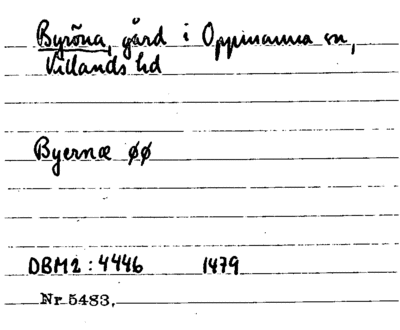 Byröna, gård i Oppmanna sn,
Villands hd
Byernæ øø
DBM2:4446 1479
Nr 5483,